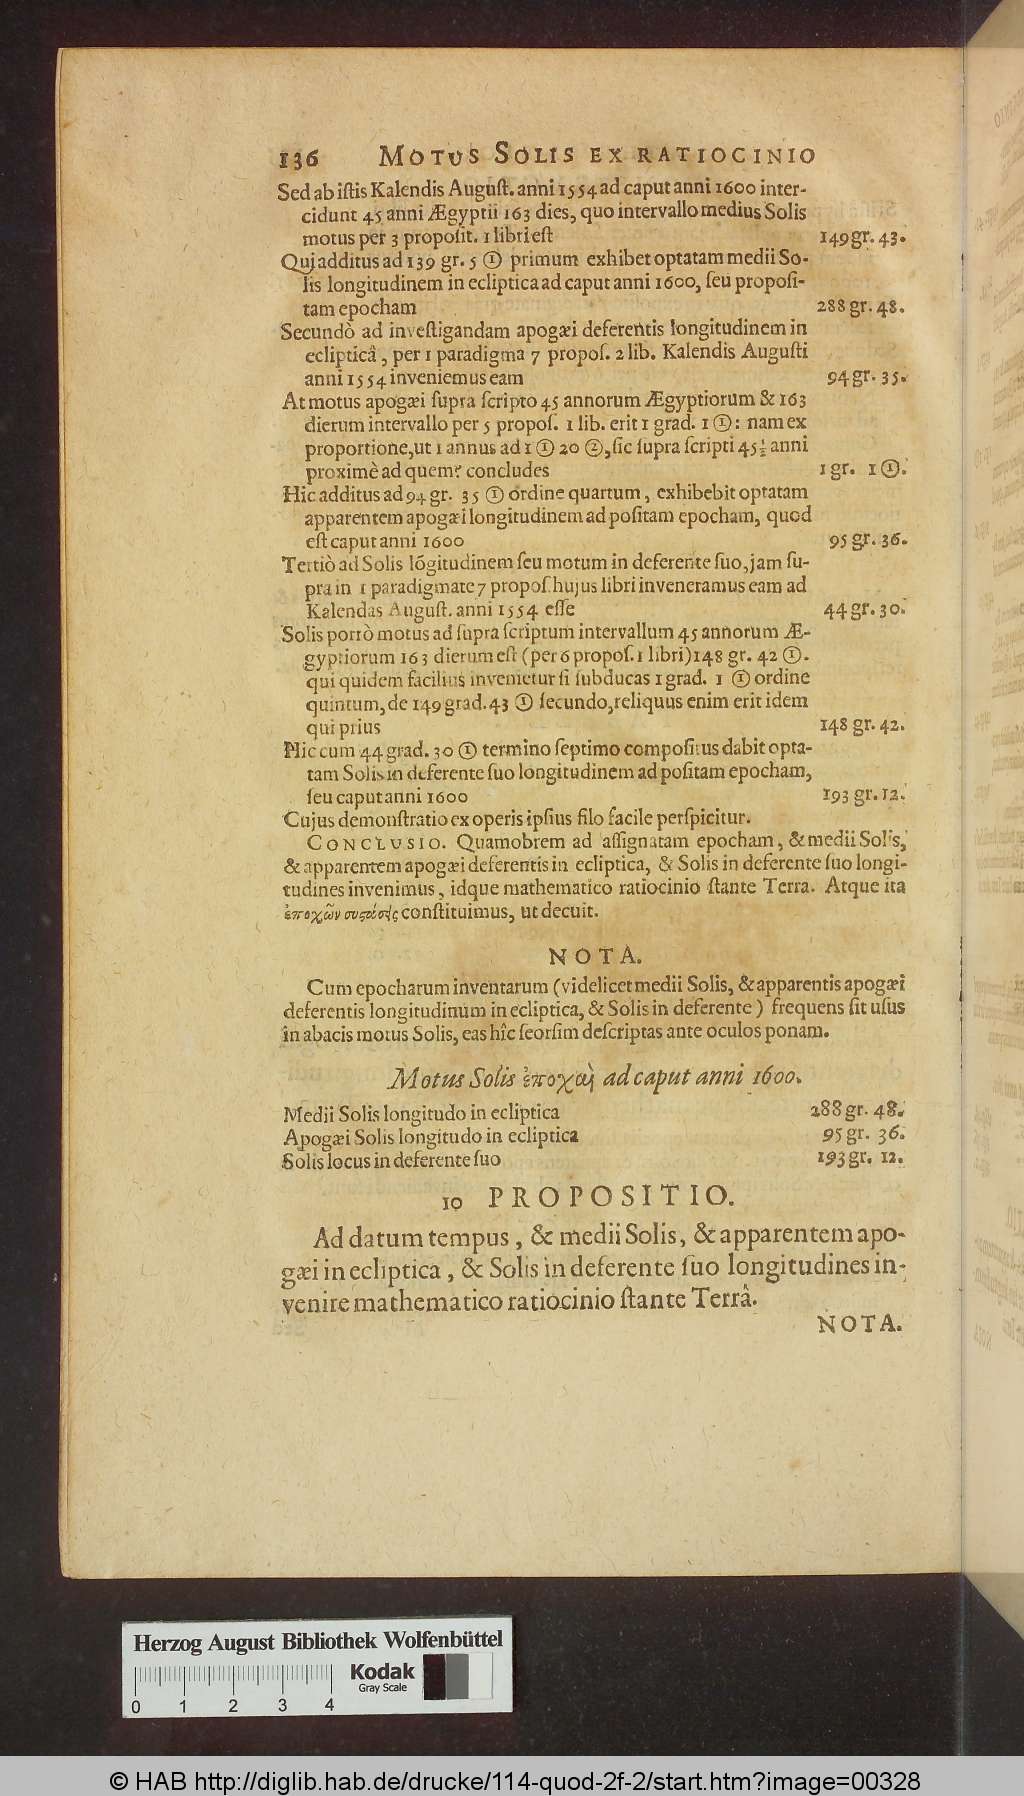 136 MOTUS SOLIS EX RATIOCINIO
Sed ab iſtis Kalendis Auguſt. anni 1554 ad caput anni 1600 inter-
cidunt 45 anni Ægyptii 163 dies, quo intervallo medius Solis
motus per 3 propoſit. 1 libri eſt 149 gr. 43.
Qui additus ad 139 gr. 5 ① primum exhibet optatam medii So-
lis longitudinem in ecliptica ad caput anni 1600, ſeu propoſi-
tam epocham 288 gr. 48.
Secundò ad inveſtigandam apogæi deferentis longitudinem in
eclipticâ, per 1 paradigma 7 propoſ. 2 lib. Kalendis Auguſti
anni 1554 inveniemus eam 94 gr. 35.
At motus apogæi ſupra ſcripto 45 annorum Ægyptiorum & 163
dierum intervallo per 5 propoſ. 1 lib. erit 1 grad. 1 ①: nam ex
proportione, ut 1 annus ad 1 ① 20 ②, ſic ſupra ſcripti 45½ anni
proximè ad quem? concludes 1 gr. 1 ①.
Hic additus ad 94 gr. 35 ① ordine quartum, exhibebit optatam
apparentem apogæi longitudinem ad poſitam epocham, quod
eſt caput anni 1600 95 gr. 36.
Tertiò ad Solis lōgitudinem ſeu motum in deferente ſuo, jam ſu-
pra in 1 paradigmate 7 propoſ. hujus libri inveneramus eam ad
Kalendas Auguſt. anni 1554 eſſe 44 gr. 30.
Solis porrò motus ad ſupra ſcriptum intervallum 45 annorum Æ-
gyptiorum 163 dierum eſt (per 6 propoſ. 1 libri) 148 gr. 42 ①.
qui quidem facilius invenietur ſi ſubducas 1 grad. 1 ① ordine
quintum, de 149 grad. 43 ① ſecundo, reliquus enim erit idem
qui prius 148 gr. 42.
Hic cum 44 grad. 30 ① termino ſeptimo compoſitus dabit opta-
tam Solis in deferente ſuo longitudinem ad poſitam epocham,
ſeu caput anni 1600 193 gr. 12.
Cujus demonſtratio ex operis ipſius filo facile perſpicitur.
CONCLUSIO. Quamobrem ad aſſignatam epocham, & medii Solis,
& apparentem apogæi deferentis in ecliptica, & Solis in deferente ſuo longi-
tudines invenimus, idque mathematico ratiocinio ſtante Terra. Atque ita
ἐποχῶν συςάσεις conſtituimus, ut decuit.
NOTA.
Cum epocharum inventarum (videlicet medii Solis, & apparentis apogæi
deferentis longitudinum in ecliptica, & Solis in deferente) frequens ſit uſus
in abacis motus Solis, eas hîc ſeorſim deſcriptas ante oculos ponam.
Motus Solis ἐποχαὶ ad caput anni 1600.
Medii Solis longitudo in ecliptica 288 gr. 48.
Apogæi Solis longitudo in ecliptica 95 gr. 36.
Solis locus in deferente ſuo 193 gr. 12.
10 PROPOSITIO.
Ad datum tempus, & medii Solis, & apparentem apo-
gæi in ecliptica, & Solis in deferente ſuo longitudines in-
venire mathematico ratiocinio ſtante Terrâ.
NOTA.
Herzog August Bibliothek Wolfenbüttel
Kodak
Gray Scale
0 1 2 3 4
© HAB http://diglib.hab.de/drucke/114-quod-2f-2/start.htm?image=00328